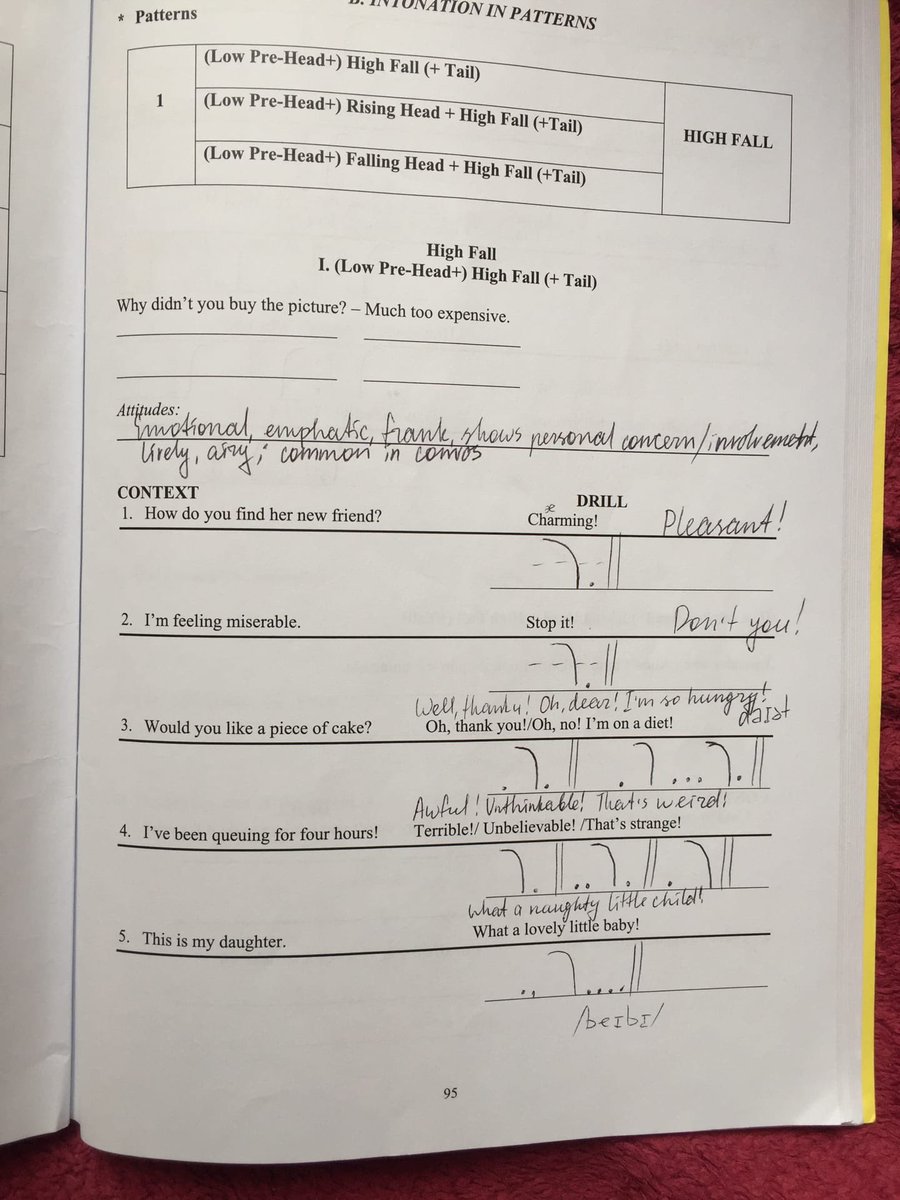 B. INTONATION IN PATTERNS
* Patterns
1
(Low Pre-Head+) High Fall (+ Tail)
(Low Pre-Head+) Rising Head + High Fall (+Tail)
(Low Pre-Head+) Falling Head + High Fall (+Tail)
HIGH FALL
High Fall
I. (Low Pre-Head+) High Fall (+ Tail)
Why didn't you buy the picture? – Much too expensive.
Attitudes:
Emotional, emphatic, frank, shows personal concern/involvement,
lively, airy; common in convos
CONTEXT DRILL
æ
1. How do you find her new friend? Charming! Pleasant!
2. I'm feeling miserable. Stop it! Don't you!
Well, thanku! Oh, dear! I'm so hungry!
daɪət
3. Would you like a piece of cake? Oh, thank you!/Oh, no! I'm on a diet!
Awful! Unthinkable! That's weird!
4. I've been queuing for four hours! Terrible!/ Unbelievable! /That's strange!
What a naughty little child!
5. This is my daughter. What a lovely little baby!
/beɪbɪ/
95